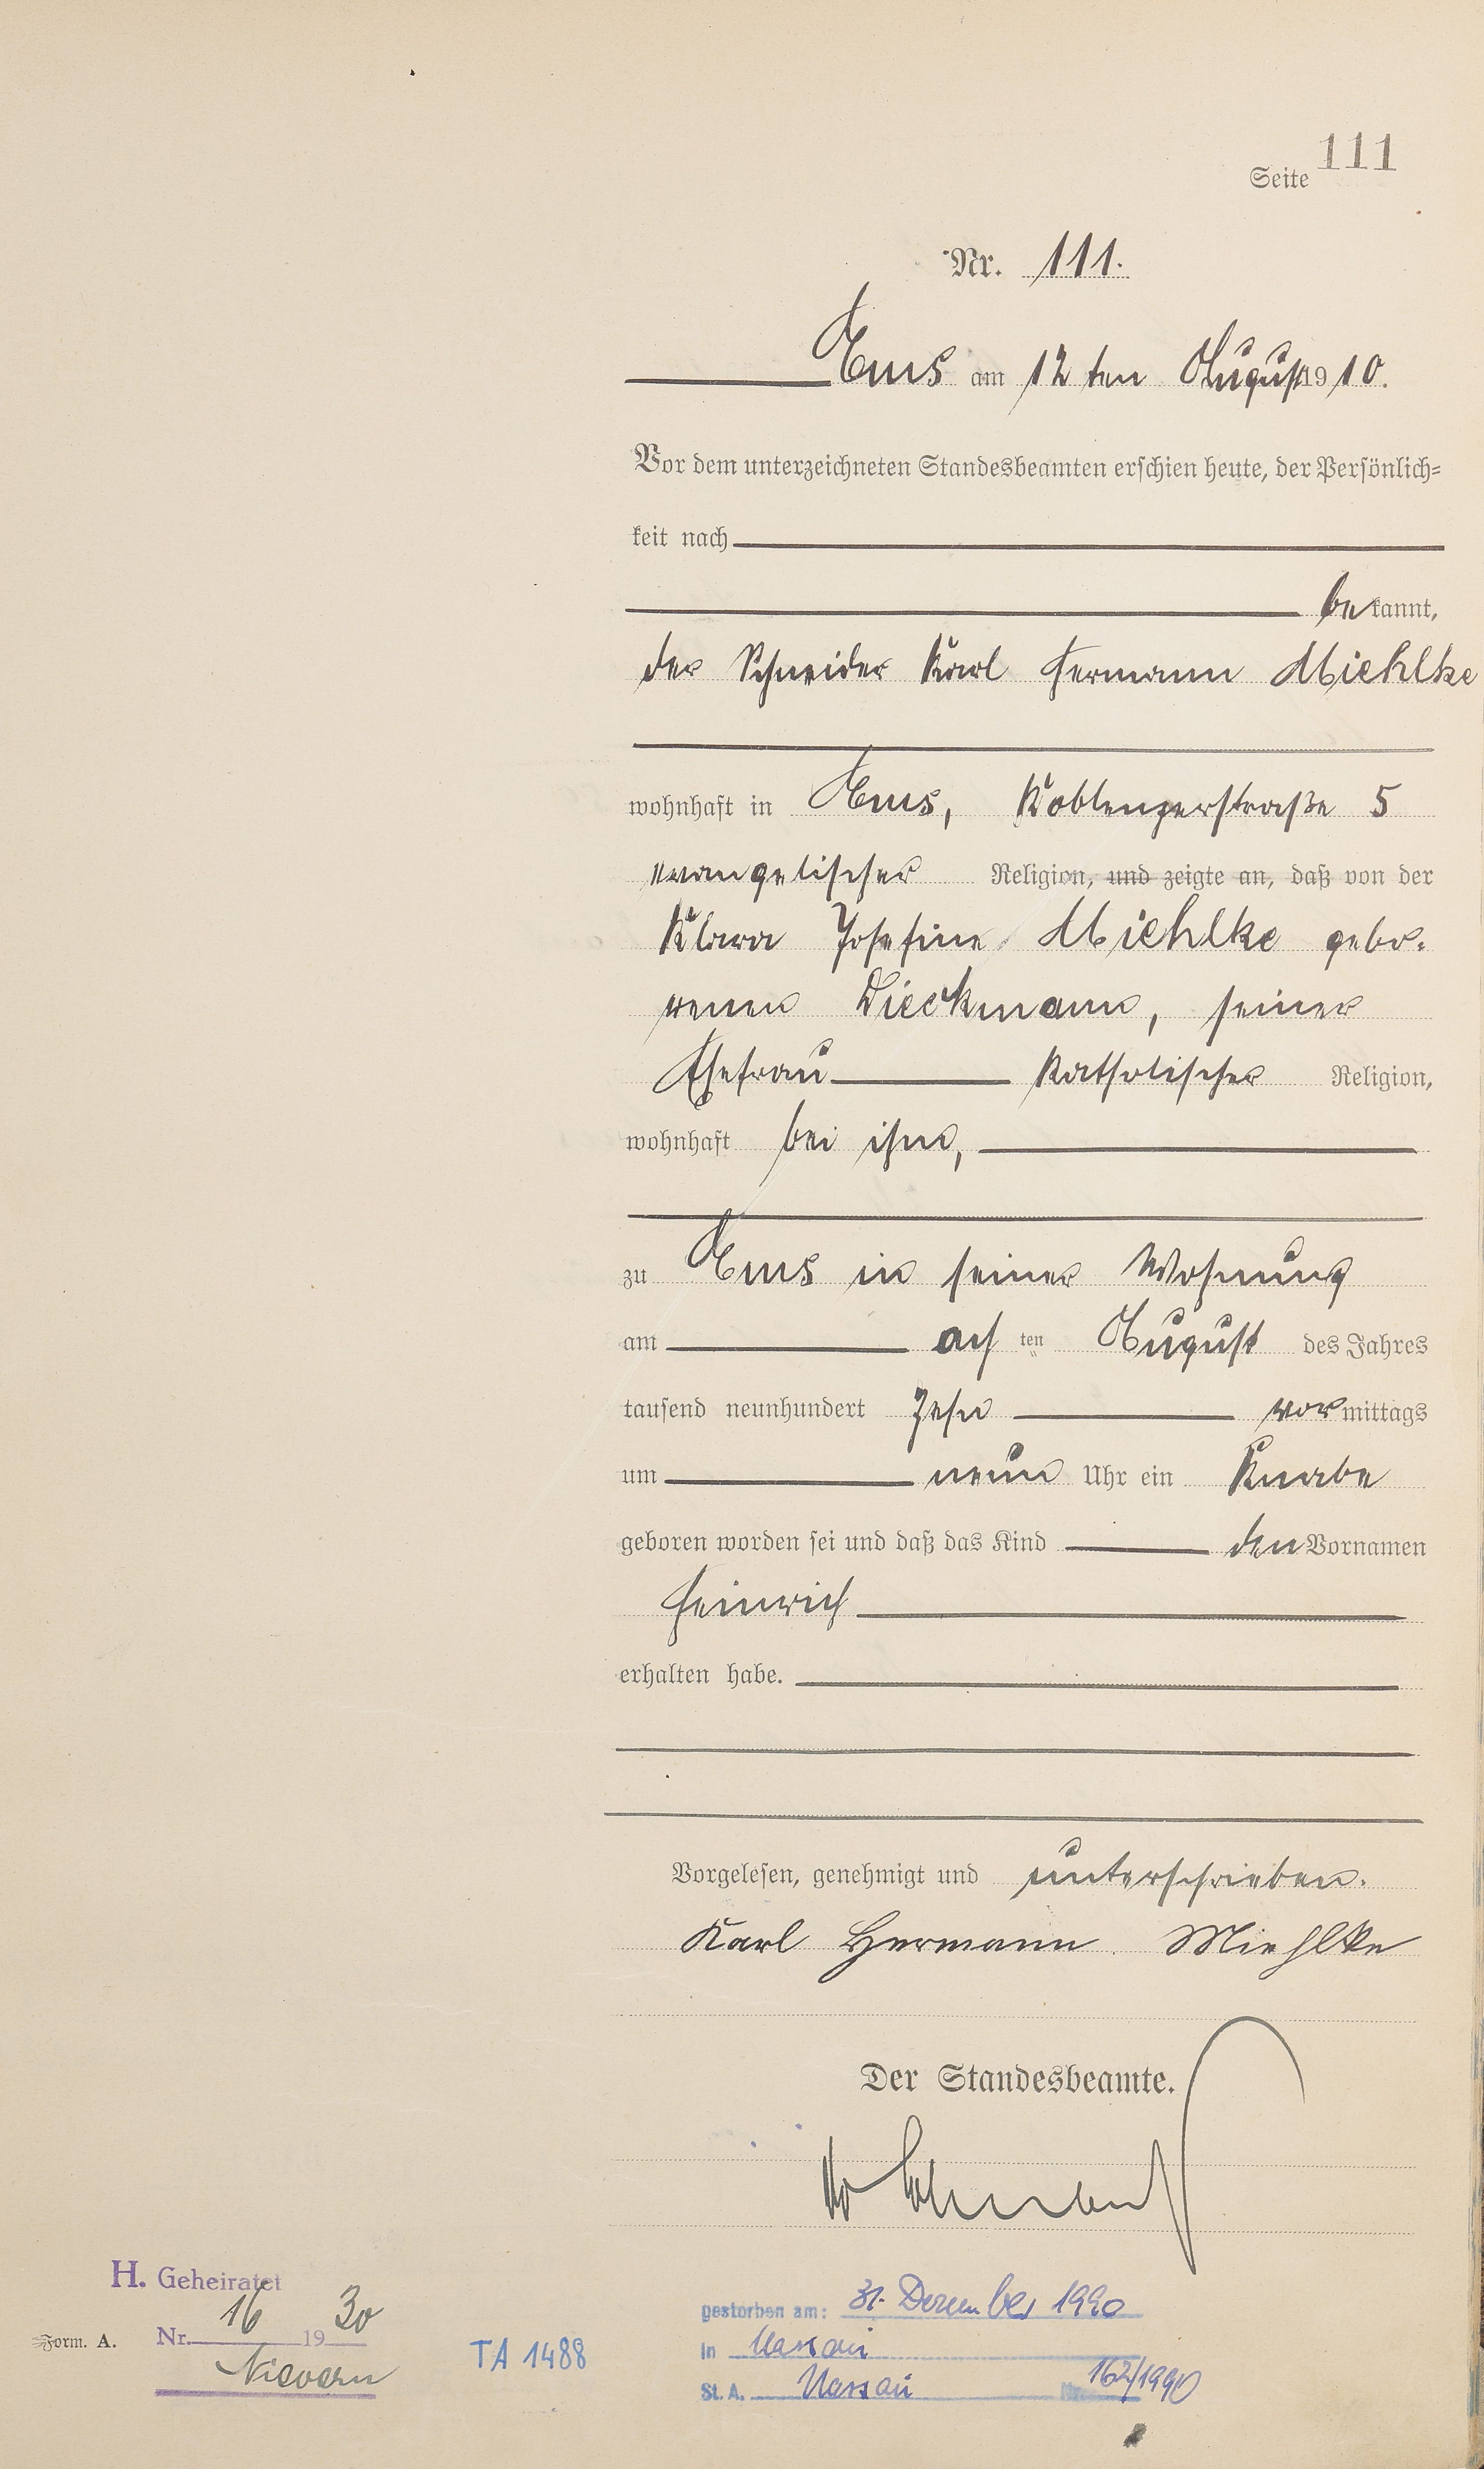 Seite 111
Nr. 111.
Ems am 12 ten August 1910.
Vor dem unterzeichneten Standesbeamten erschien heute, der Persönlich=
keit nach
bekannt,
der Schneider Karl Hermann Miehlke
wohnhaft in Ems, Koblenzerstraße 5
evangelischer Religion, und zeigte an, daß von der
Klara Josefine Miehlke gebo-
renen Dieckmann, seiner
Ehefrau katholischer Religion,
wohnhaft bei ihm,
zu Ems in seiner Wohnung
am ach ten August des Jahres
tausend neunhundert zehn vormittags
um neun Uhr ein Knabe
geboren worden sei und daß das Kind den Vornamen
Heinrich
erhalten habe.
Vorgelesen, genehmigt und unterschrieben.
Karl Hermann Miehlke
Der Standesbeamte.
H. Geheiratet
Form. A. Nr. 16 1930
Nievern
TA 1488
gestorben am: 31. Dezember 1990
in Nassau
St. A. Nassau Nr. 162/1990